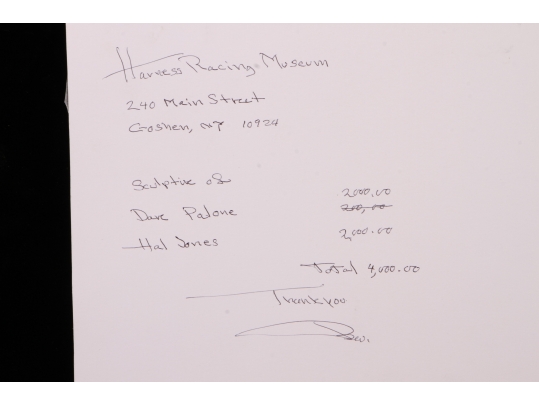 Harness Racing Museum
240 Main Street
Goshen, NY 10924
Sculptire of
2000.00
Dave Palone
200,00
Hal Jones
2,000.00
Total 4,000.00
Thank you